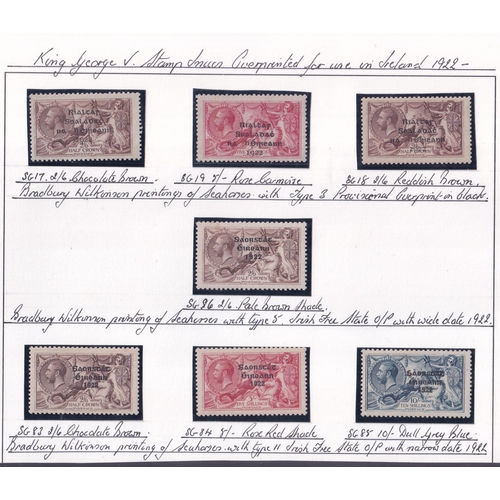 King George V. Stamp Issues Overprinted for use in Ireland 1922 -
Rialtar Sealadac na hÉireann 1922
HALF CROWN
Rialtar Sealadac na hÉireann 1922
Rialtar Sealadac na hÉireann 1922
HALF CROWN
SG17. 2/6 Chocolate Brown. SG19 5/- Rose Carmine SG18 2/6 Reddish Brown.
Bradbury Wilkinson printings of Seahorses with Type 3 Provisional Overprint in Black.
Saorstát Éireann 1922
HALF CROWN
SG86 2/6. Pale Brown Shade.
Bradbury Wilkinson printing of Seahorses with type 5 Irish Free State O/P with wide date 1922.
Saorstát Éireann 1922
HALF CROWN
Saorstát Éireann 1922
Saorstát Éireann 1922
TEN SHILLINGS
SG83 2/6 Chocolate Brown. SG84 5/- Rose Red Shade SG85 10/- Dull Grey Blue.
Bradbury Wilkinson printing of Seahorses with type 11 Irish Free State O/P with narrow date 1922